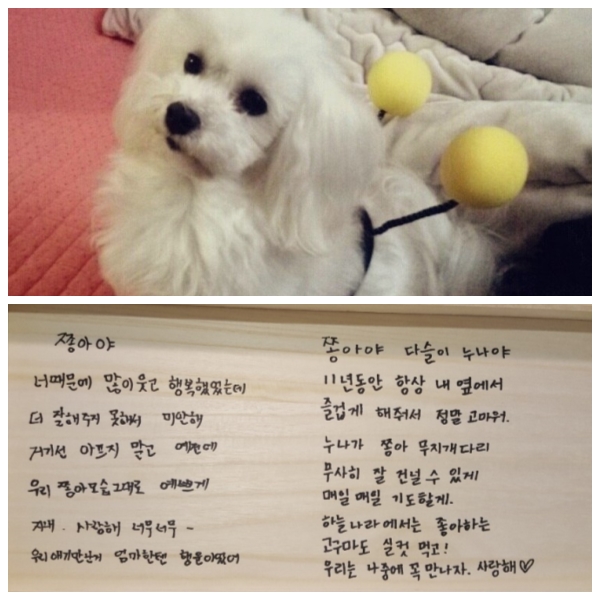 쫑아야
너때문에 많이 웃고 행복했었는데
더 잘해주지 못해서 미안해
거기선 아프지 말고 예전에
우리 쫑아모습그대로 예쁘게
지내. 사랑해 너무너무~
우리애기만난거 엄마한텐 행운이었어
쫑아야 다슬이 누나야
11년동안 항상 내 옆에서
즐겁게 해줘서 정말 고마워.
누나가 쫑아 무지개다리
무사히 잘 건널 수 있게
매일 매일 기도할게.
하늘나라에서는 좋아하는
고구마도 실컷 먹고!
우리는 나중에 꼭 만나자. 사랑해♡